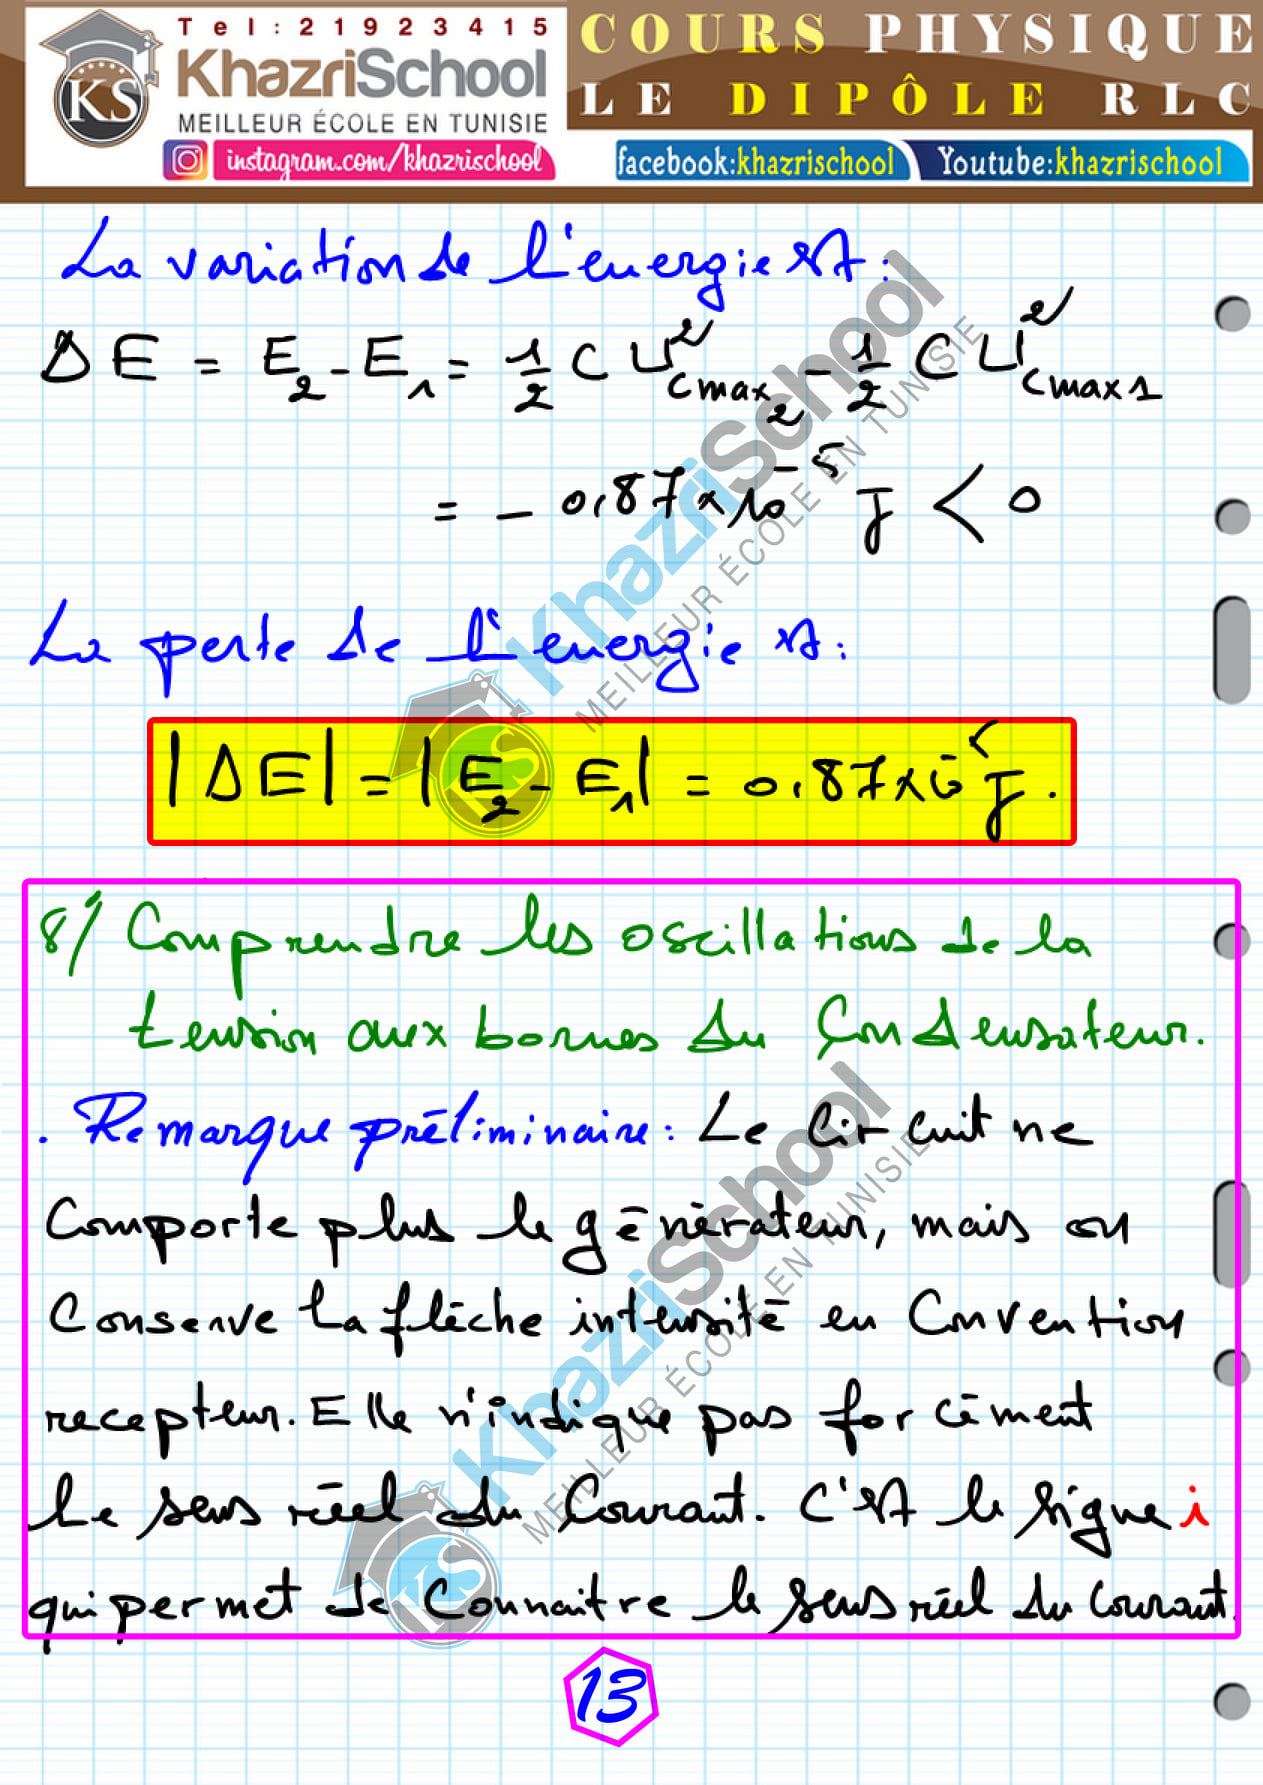 Tel: 21923415
KhazriSchool
MEILLEUR ÉCOLE EN TUNISIE
KS
instagram.com/khazrischool
COURS PHYSIQUE
LE DIPÔLE RLC
facebook:khazrischool
Youtube:khazrischool
La variation de l'énergie est :
ΔE = E₂ - E₁ = 1/2 C U²cmax₂ - 1/2 C U²cmax1
= - 0,87 × 10⁻⁵ J < 0
La perte de l'énergie est :
|ΔE| = |E₂ - E₁| = 0,87 × 10⁻⁵ J.
8/ Comprendre les oscillations de la
tension aux bornes du Condensateur.
. Remarque préliminaire : Le circuit ne
comporte plus le générateur, mais on
conserve la flèche intensité en Convention
recepteur. Elle n'indique pas forcément
le sens réel du Courant. C'est le signe i
qui permet de Connaitre le sens réel du courant.
13
KhazriSchool
MEILLEUR ÉCOLE EN TUNISIE
KS
KhazriSchool
MEILLEUR ÉCOLE EN TUNISIE
KS